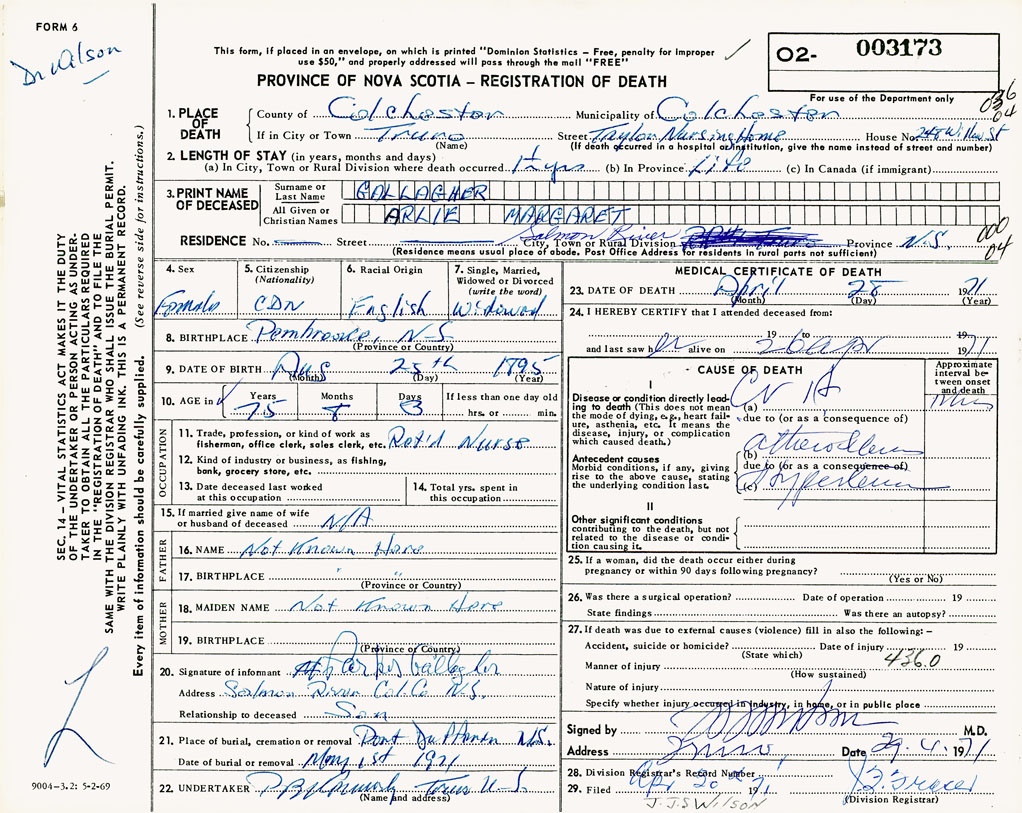 FORM 6
Dr Wilson
This form, if placed in an envelope, on which is printed "Dominion Statistics – Free, penalty for improper
use $50," and properly addressed will pass through the mail "FREE"
PROVINCE OF NOVA SCOTIA – REGISTRATION OF DEATH
O2- 003173
For use of the Department only
036
04
1. PLACE OF DEATH
County of Colchester Municipality of Colchester
If in City or Town Truro Street Taylor Nursing Home House No. 248 Willow St
(Name) (If death occurred in a hospital or institution, give the name instead of street and number)
2. LENGTH OF STAY (in years, months and days)
(a) In City, Town or Rural Division where death occurred 1½ yrs (b) In Province Life (c) In Canada (if immigrant)
3. PRINT NAME OF DECEASED
Surname or Last Name GALLAGHER
All Given or Christian Names ARLIE MARGARET
Salmon River
RESIDENCE No. Street City, Town or Rural Division Province N.S.
000
04
(Residence means usual place of abode. Post Office Address for residents in rural parts not sufficient)
4. Sex
Female
5. Citizenship
(Nationality)
CDN
6. Racial Origin
English
7. Single, Married,
Widowed or Divorced
(write the word)
Widowed
8. BIRTHPLACE Pembrooke, N-S
(Province or Country)
9. DATE OF BIRTH Aug 25th 1895
(Month) (Day) (Year)
10. AGE in Years Months Days If less than one day old
75 8 3 hrs. or min.
OCCUPATION
11. Trade, profession, or kind of work as
fisherman, office clerk, sales clerk, etc. Ret'd Nurse
12. Kind of industry or business, as fishing,
bank, grocery store, etc.
13. Date deceased last worked
at this occupation
14. Total yrs. spent in
this occupation
15. If married give name of wife
or husband of deceased N/A
FATHER
16. NAME Not Known Here
17. BIRTHPLACE " "
(Province or Country)
MOTHER
18. MAIDEN NAME Not Known Here
19. BIRTHPLACE
(Province or Country)
20. Signature of informant Gallagher
Address Salmon River Col. Co N.S.
Relationship to deceased Son
21. Place of burial, cremation or removal N.S.
Date of burial or removal May 1st 1971
22. UNDERTAKER Truro N-S
(Name and address)
MEDICAL CERTIFICATE OF DEATH
23. DATE OF DEATH April 28 1971
(Month) (Day) (Year)
24. I HEREBY CERTIFY that I attended deceased from:
19 to 19
and last saw her alive on 26 apr 1971
CAUSE OF DEATH
Approximate interval between onset and death
I
Disease or condition directly leading to death (This does not mean the mode of dying, e.g., heart failure, asthenia, etc. It means the disease, injury, or complication which caused death.)
(a) CV
due to (or as a consequence of)
Antecedent causes
Morbid conditions, if any, giving rise to the above cause, stating the underlying condition last.
(b)
due to (or as a consequence of)
(c)
II
Other significant conditions
contributing to the death, but not related to the disease or condition causing it.
25. If a woman, did the death occur either during
pregnancy or within 90 days following pregnancy?
(Yes or No)
26. Was there a surgical operation? Date of operation 19
State findings Was there an autopsy?
27. If death was due to external causes (violence) fill in also the following: –
Accident, suicide or homicide? Date of injury 19
(State which)
436.0
Manner of injury
(How sustained)
Nature of injury
Specify whether injury occurred in industry, in home, or in public place
Signed by M.D.
Address Truro Date 29. 4. 1971
28. Division Registrar's Record Number
29. Filed Apr 1971
J.J.S Wilson
(Division Registrar)
SEC. 14 – VITAL STATISTICS ACT MAKES IT THE DUTY
OF THE UNDERTAKER OR PERSON ACTING AS UNDERTAKER TO OBTAIN ALL THE PARTICULARS REQUIRED
IN THE "REGISTRATION OF DEATH" AND TO FILE THE
SAME WITH THE DIVISION REGISTRAR WHO SHALL ISSUE THE BURIAL PERMIT.
WRITE PLAINLY WITH UNFADING INK. THIS IS A PERMANENT RECORD.
Every item of information should be carefully supplied. (See reverse side for instructions.)
9004-3.2: 5-2-69